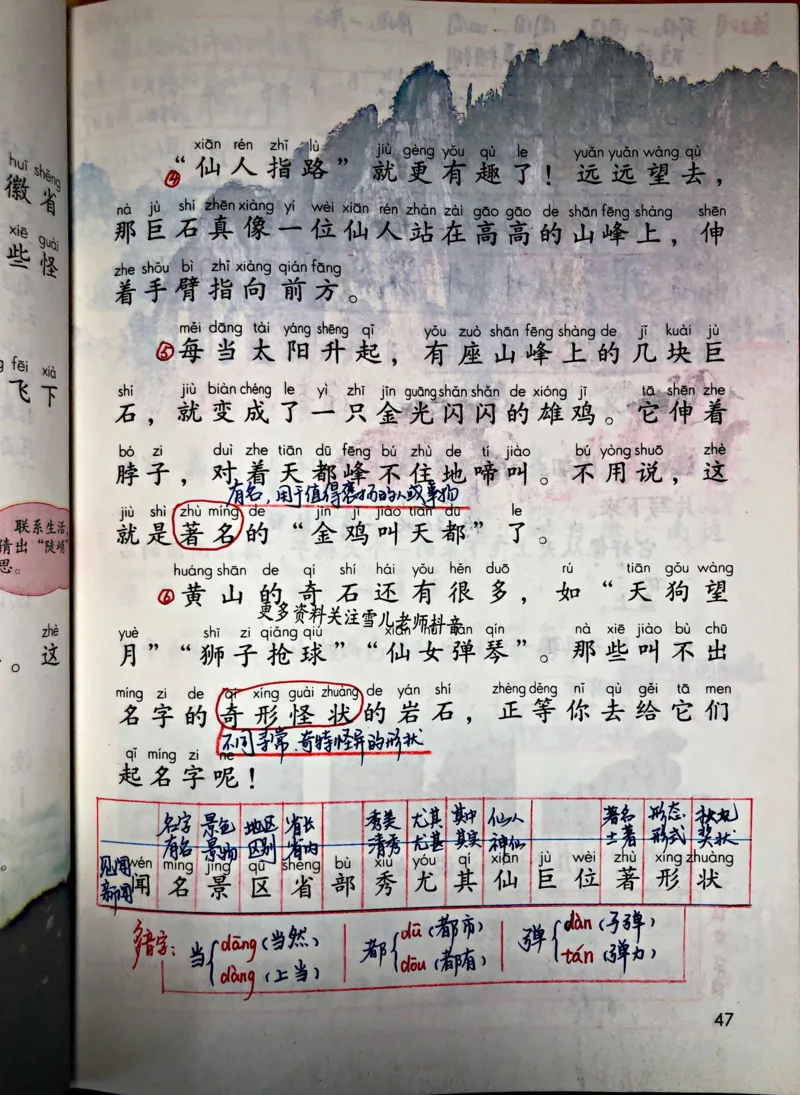 huī shěng
徽省
xiē guài
些怪
fēi xià
飞下
联系生活,
猜出“陡峭”
思。
zhè
。这
xiān rén zhǐ lù jiù gèng yǒu qù le yuǎn yuǎn wàng qù
④“仙人指路”就更有趣了！远远望去，
nà jù shí zhēn xiàng yí wèi xiān rén zhàn zài gāo gāo de shān fēng shàng shēn
那巨石真像一位仙人站在高高的山峰上，伸
zhe shǒu bì zhǐ xiàng qián fāng
着手臂指向前方。
měi dāng tài yáng shēng qǐ yǒu zuò shān fēng shàng de jǐ kuài jù
⑤每当太阳升起，有座山峰上的几块巨
shí jiù biàn chéng le yì zhī jīn guāng shǎn shǎn de xióng jī tā shēn zhe
石，就变成了一只金光闪闪的雄鸡。它伸着
bó zi duì zhe tiān dū fēng bú zhù de tí jiào bú yòng shuō zhè
脖子，对着天都峰不住地啼叫。不用说，这
有名,用于值得褒扬的人或事物
jiù shì zhù míng de jīn jī jiào tiān dū le
就是著名的“金鸡叫天都”了。
huáng shān de qí shí hái yǒu hěn duō rú tiān gǒu wàng
⑥黄山的奇石还有很多，如“天狗望
更多资料关注雪儿老师抖音
yuè shī zi qiǎng qiú xiān nǚ tán qín nà xiē jiào bù chū
月”“狮子抢球”“仙女弹琴”。那些叫不出
míng zi de qí xíng guài zhuàng de yán shí zhèng děng nǐ qù gěi tā men
名字的奇形怪状的岩石，正等你去给它们
不同寻常,奇特怪异的形状
qǐ míng zi ne
起名字呢！
名字 景色 地区 省长 秀美 尤其 其中 仙人 著名 形态 状况
见闻 有名 景物 区别 省内 清秀 尤甚 其实 神仙 土著 形式 奖状
新闻
wén míng jǐng qū shěng bù xiù yóu qí xiān jù wèi zhù xíng zhuàng
闻名景区省部秀尤其仙巨位著形状
多音字: 当 dāng (当然) 都 dū (都市) 弹 dàn (子弹)
dàng (上当) dōu (都有) tán (弹力)
47